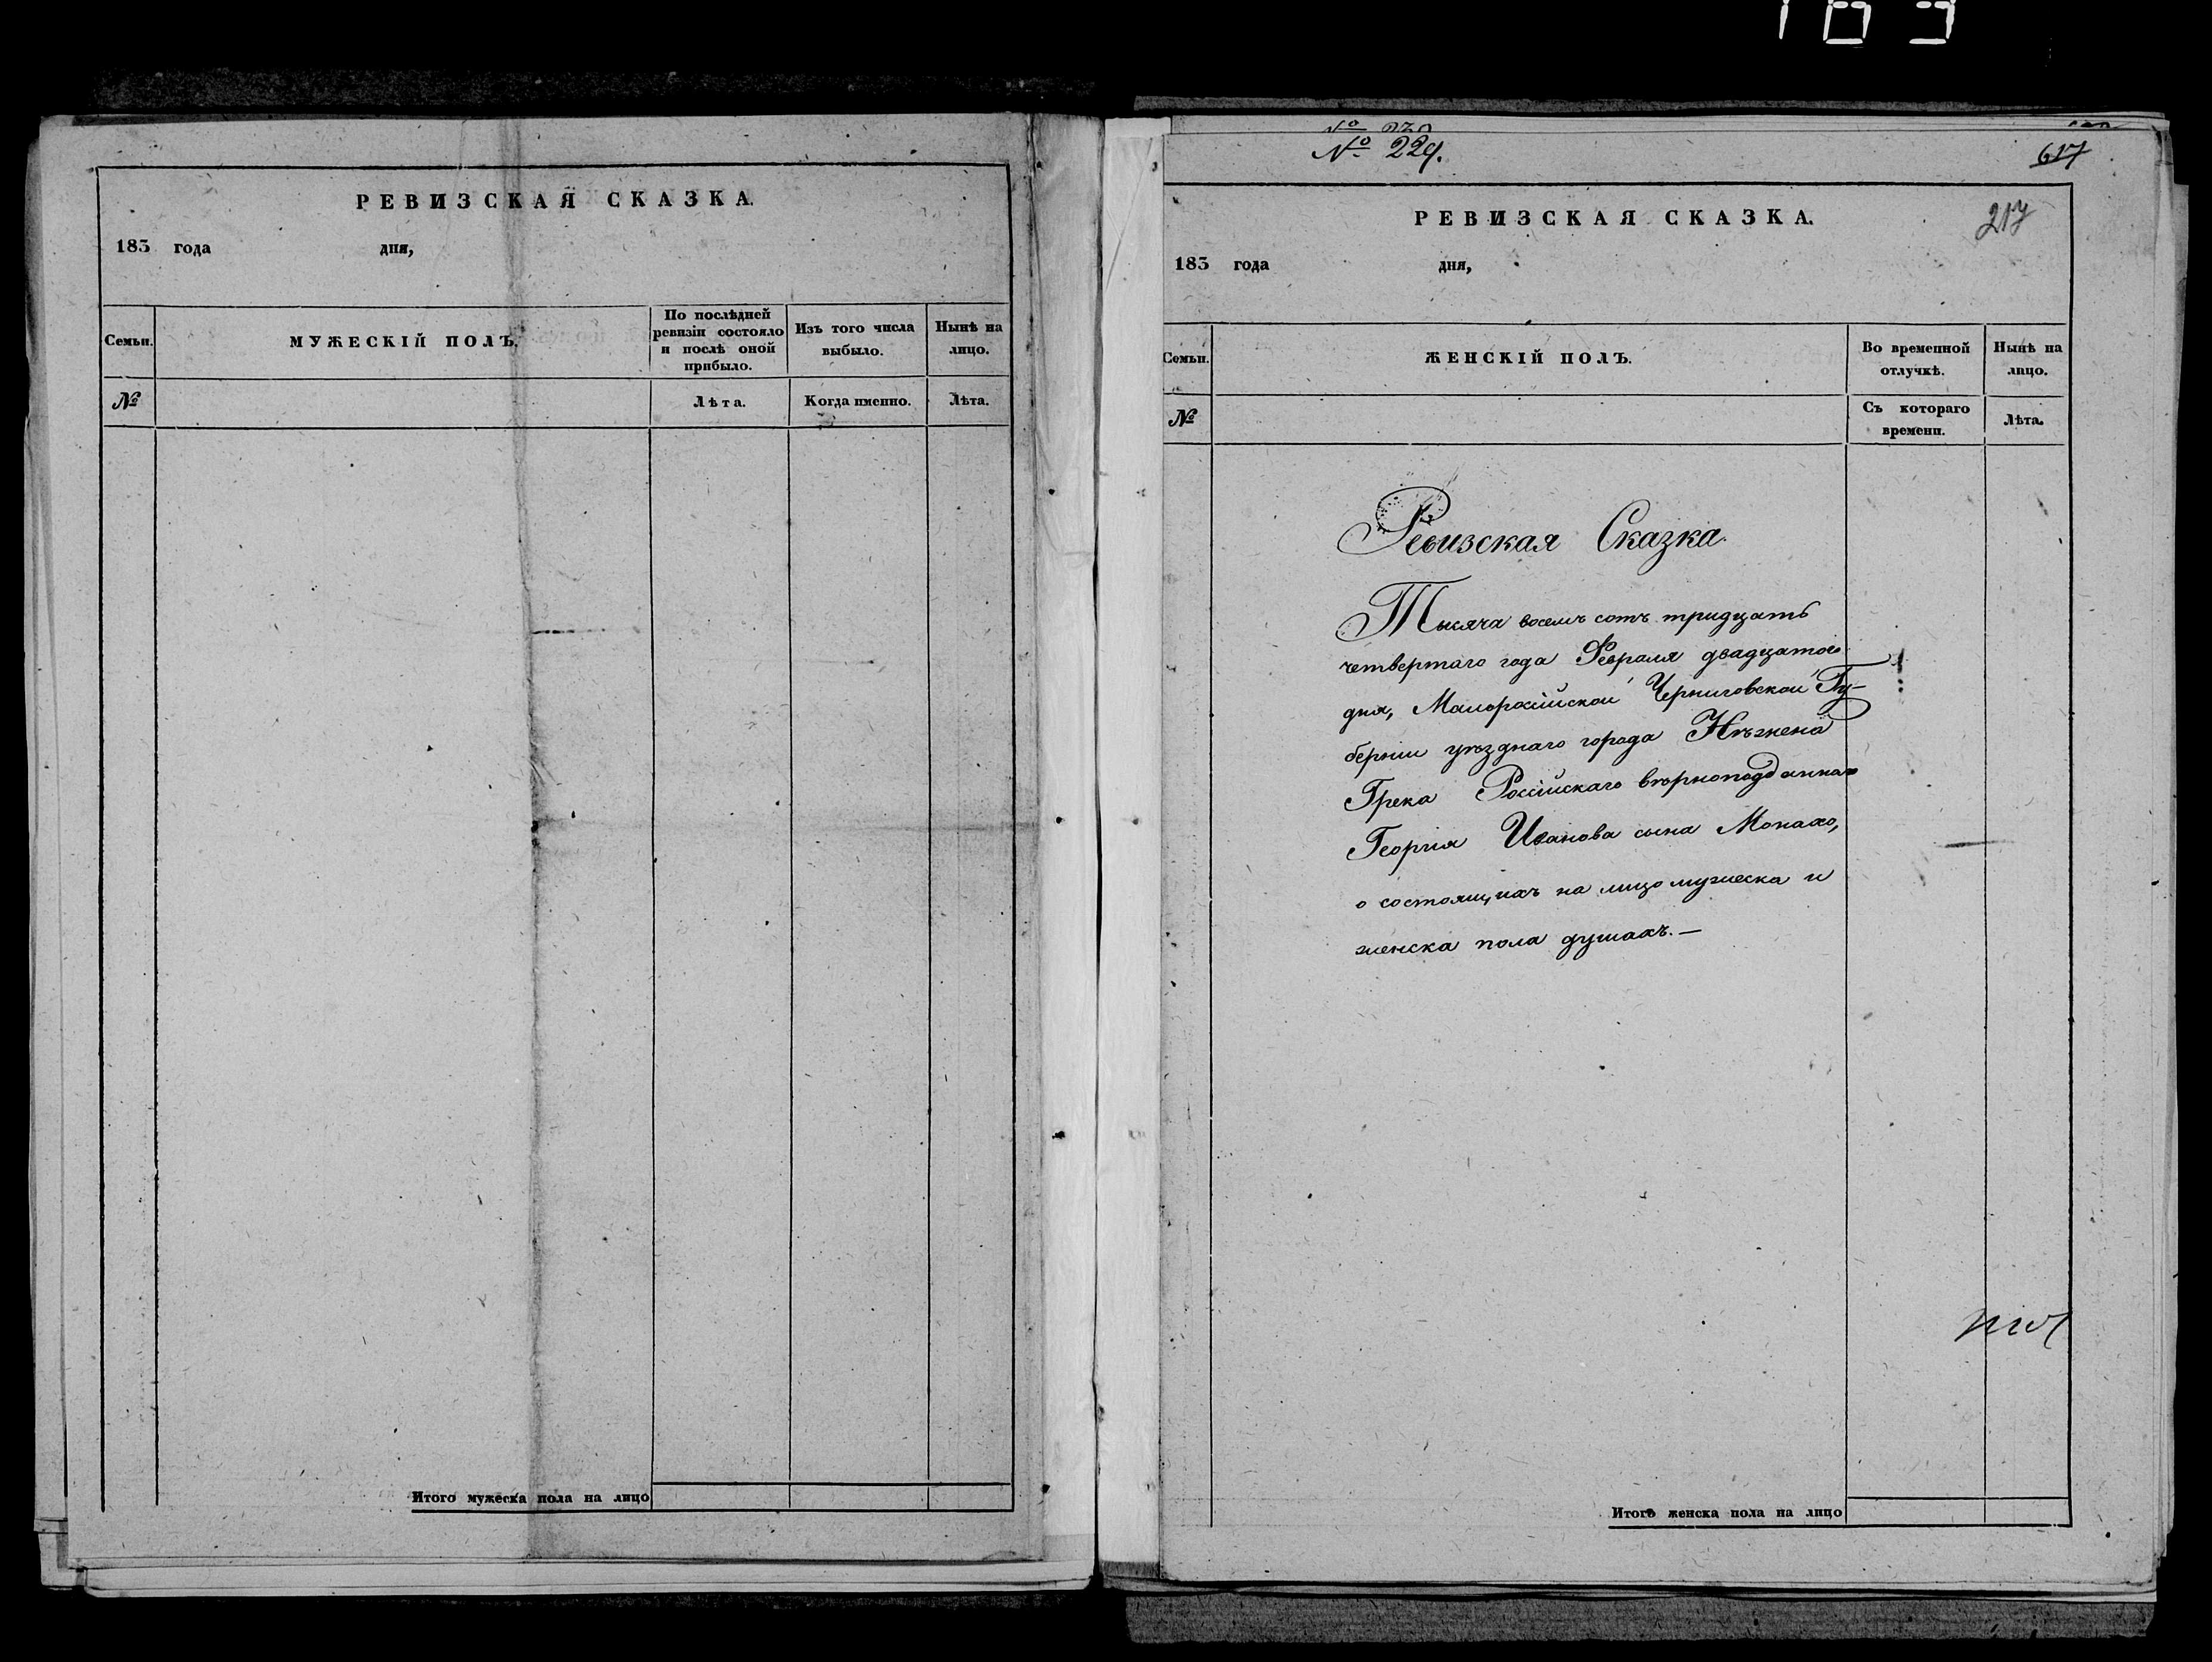 РЕВИЗСКАЯ СКАЗКА.
183 года дня,
Семьи.
МУЖЕСКІЙ ПОЛЪ.
По послѣдней
ревизіи состояло
и послѣ оной
прибыло.
Изъ того числа
выбыло.
Нынѣ на
лицо.
№
Лѣта.
Когда именно.
Лѣта.
Итого мужеска пола на лицо
№ 229.
617
РЕВИЗСКАЯ СКАЗКА.
217
183 года дня,
Семьи.
ЖЕНСКІЙ ПОЛЪ.
Во временной
отлучкѣ.
Нынѣ на
лицо.
№
Съ котораго
времени.
Лѣта.
Ревизская Сказка.
Тысяча восемъ сотъ тридцать
четвертаго года Февраля двадцатого
дня, Малоросійской Черниговской Гу-
берніи уѣзднаго города Нѣжена
Грека Россійскаго вѣрноподданнаго
Георгія Иванова сына Монахо,
о состоящихъ на лицо мужеска и
женска пола душахъ.—
Итого женска пола на лицо